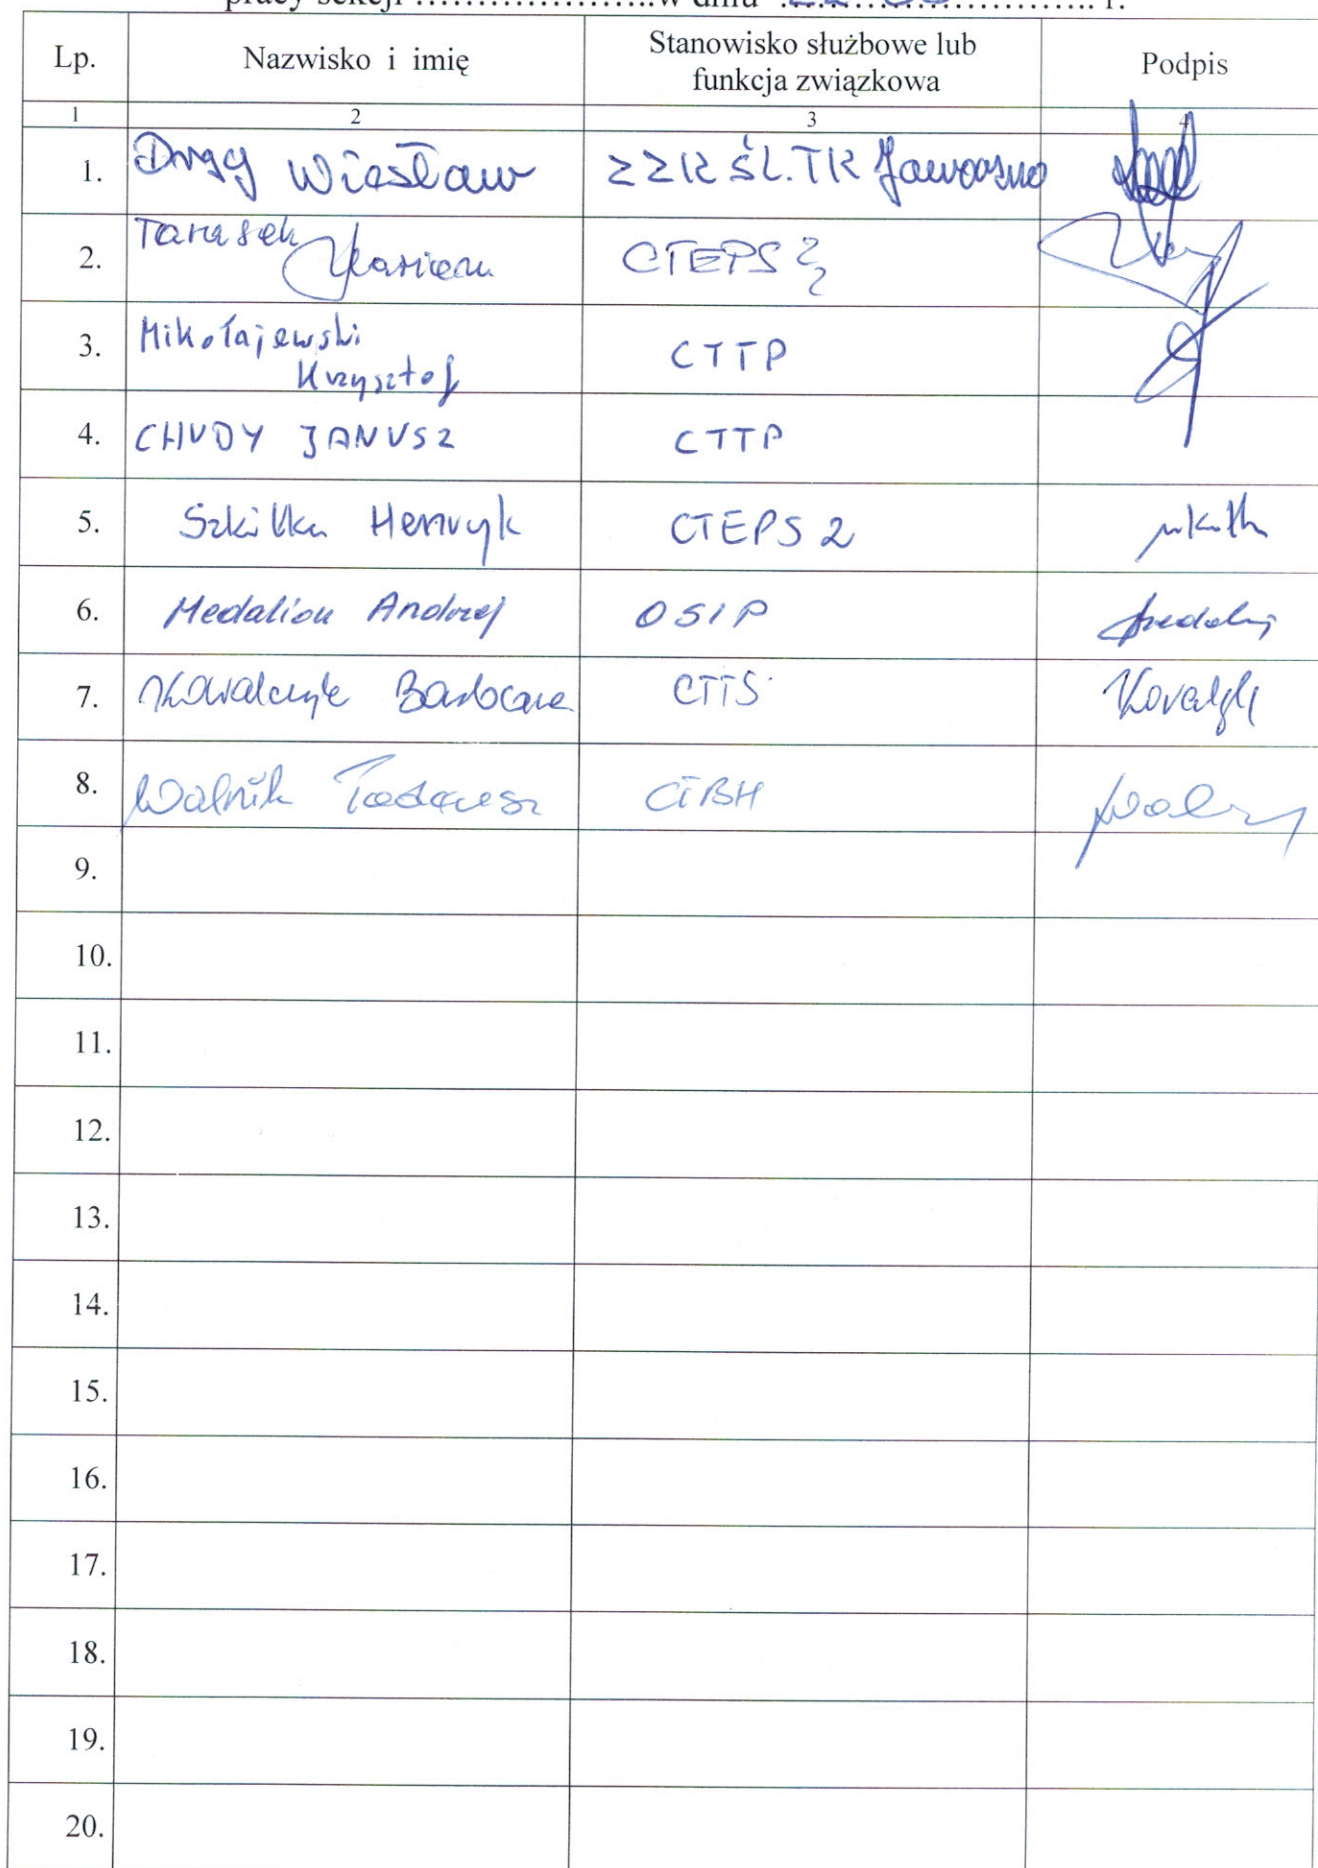 pracy sekcji ........................w dniu ................................ r.
Lp. Nazwisko i imię Stanowisko służbowe lub funkcja związkowa Podpis
1 2 3 4
1. Wiesław ZZK ŚL.TK Jaworzno
2. Tarasek Marian CTEPS 2
3. Mikołajewski Krzysztof CTTP
4. CHUDY JANUSZ CTTP
5. Szkilka Henryk CTEPS 2
6. Medalion Andrzej OSIP
7. Kowalczyk Barbara CTTS
8. Walnik Tadeusz CTBH
9.
10.
11.
12.
13.
14.
15.
16.
17.
18.
19.
20.